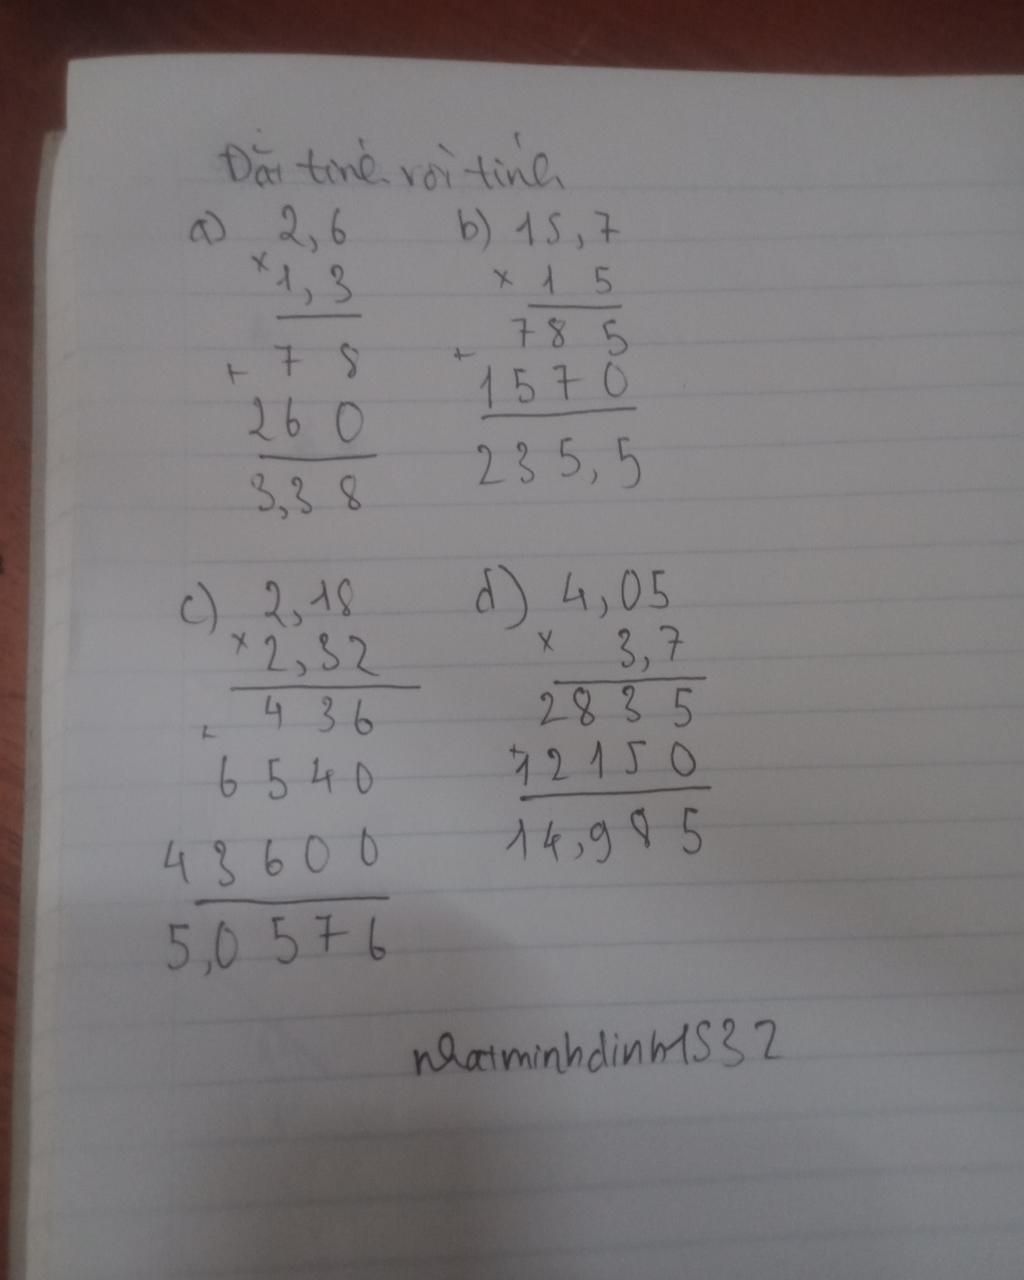 Đặt tính rồi tính
a) 2,6
× 1,3
+ 7 8
2 6 0
3,3 8
b) 15,7
× 1 5
7 8 5
+
1 5 7 0
2 3 5, 5
c) 2,18
× 2,32
4 3 6
+
6 5 4 0
4 3 6 0 0
5,0 5 7 6
d) 4,05
× 3,7
2 8 3 5
+ 1 2 1 5 0
1 4, 9 8 5
nhatminhdinh1532